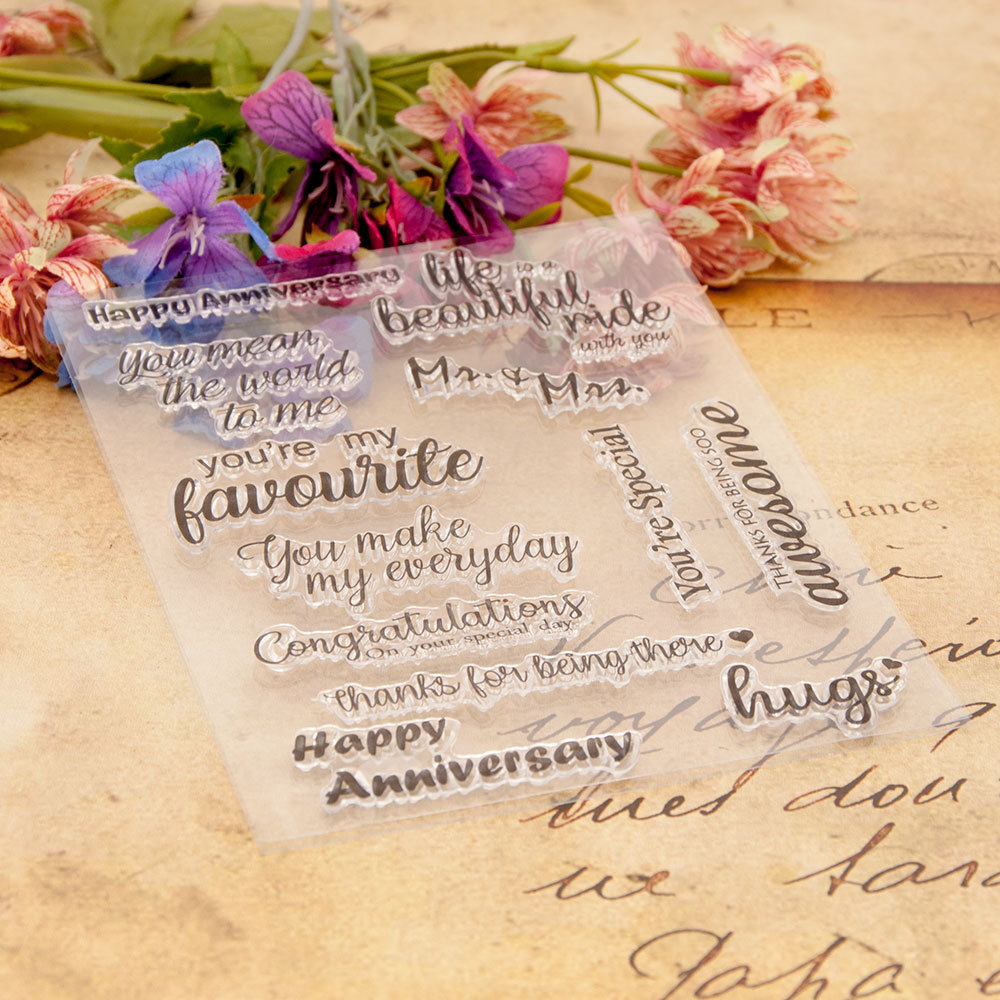 Happy Anniversary
life is a
beautiful
ride
with you
you mean
the world
to me
Mr. & Mrs.
you're my
favourite
You're Special
THANKS FOR BEING SOO
awesome
You make
my everyday
Congratulations
On your special day
thanks for being there
hugs
Happy
Anniversary
ndance
mes dou
Papa